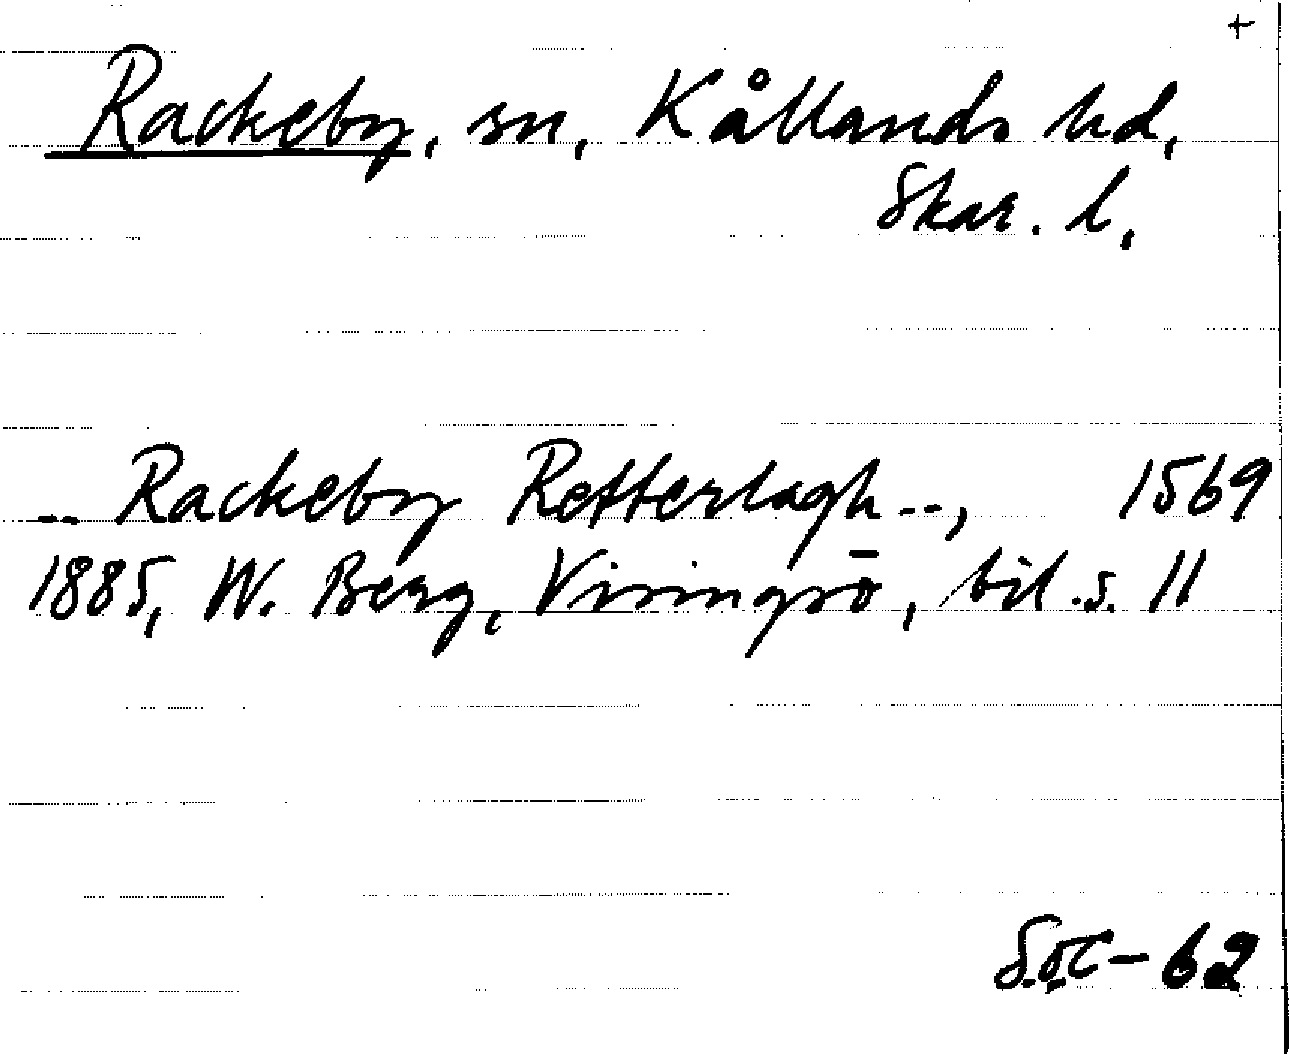 +
Rackeby, sn, Kållands hd,
Skar. l.
-- Rackeby Retterlagh --, 1569
1885, W. Berg, Visingsö, bil. s. 11
-62